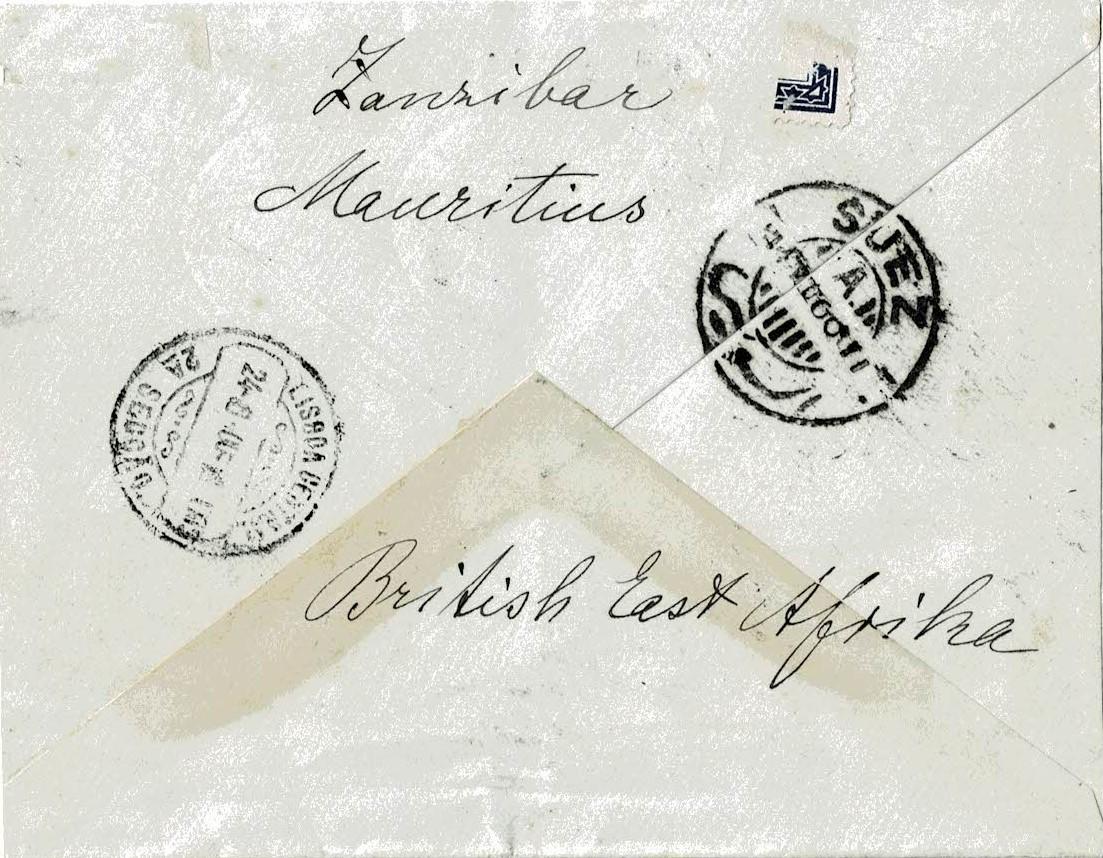 Zanzibar
Mauritius
SUEZ
LISBOA CENTRAL
2A SECÇÃO
British East Afrika